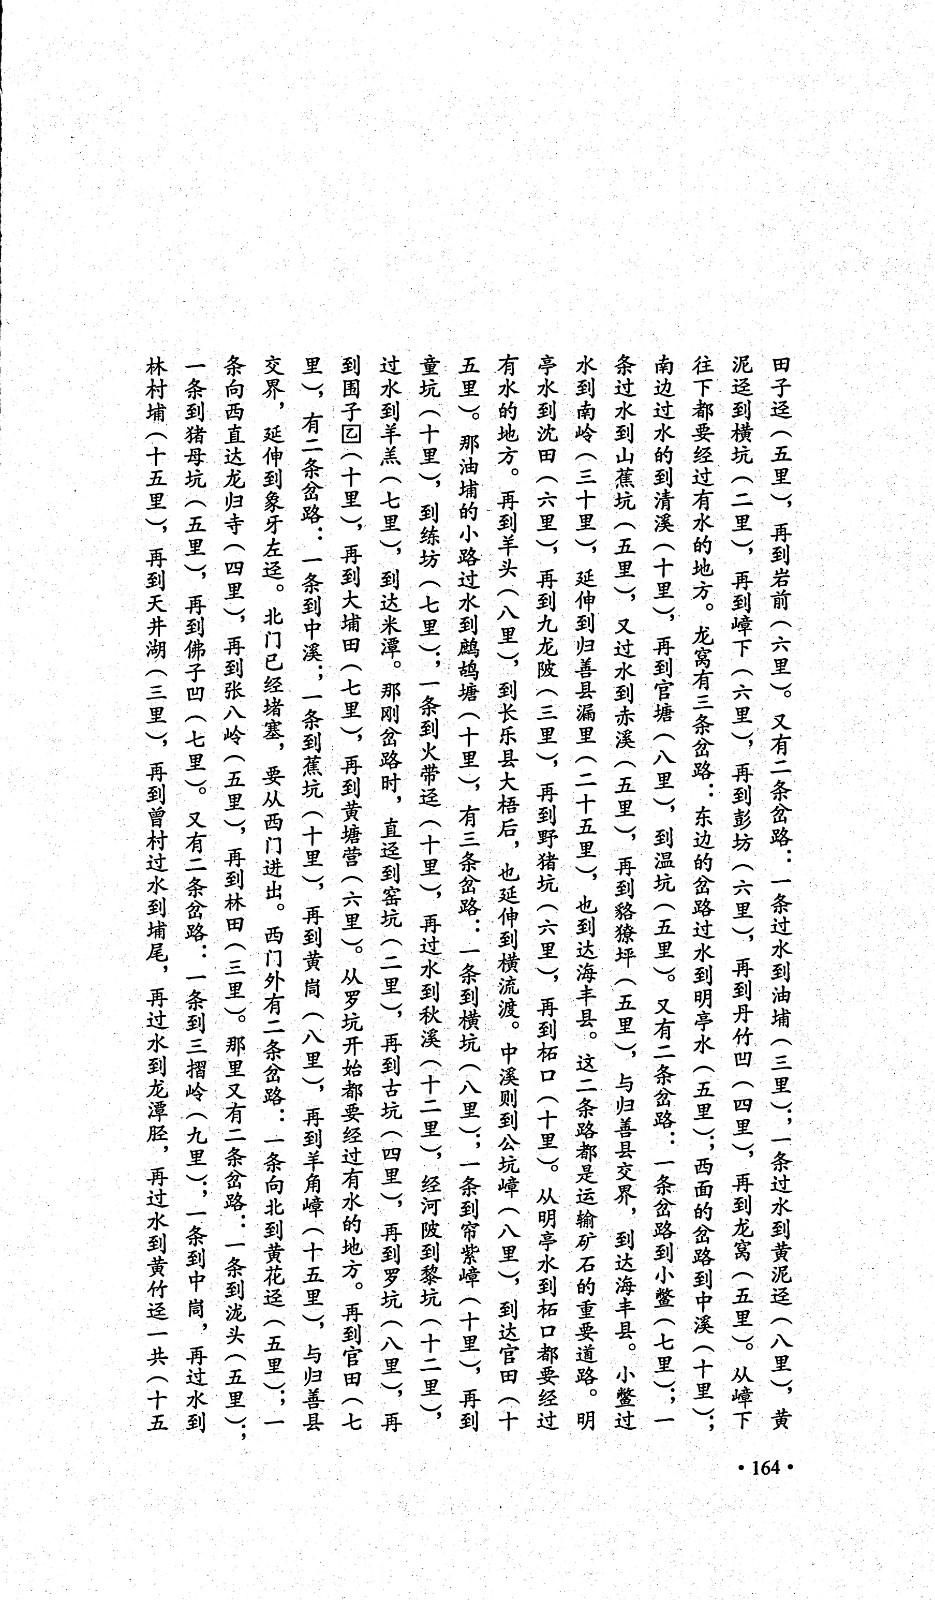 田子迳（五里），再到岩前（六里）。又有二条岔路：一条过水到油埔（三里）；一条过水到黄泥迳（八里），黄
泥迳到横坑（二里），再到嶂下（六里），再到彭坊（六里），再到丹竹凹（四里），再到龙窝（五里）。从嶂下
往下都要经过有水的地方。龙窝有三条岔路：东边的岔路过水到明亭水（五里）；西面的岔路到中溪（十里）；
南边过水的到清溪（十里），再到官塘（八里），到温坑（五里）。又有二条岔路：一条岔路到小鳖（七里）；一
条过水到山蕉坑（五里），又过水到赤溪（五里），再到貉獠坪（五里），与归善县交界，到达海丰县。小鳖过
水到南岭（三十里），延伸到归善县漏里（二十五里），也到达海丰县。这二条路都是运输矿石的重要道路。明
亭水到沈田（六里），再到九龙陂（三里），再到野猪坑（六里），再到柘口（十里）。从明亭水到柘口都要经过
有水的地方。再到羊头（八里），到长乐县大梧后，也延伸到横流渡。中溪则到公坑嶂（八里），到达官田（十
五里）。那油埔的小路过水到鹧鸪塘（十里），有三条岔路：一条到横坑（八里）；一条到帘紫嶂（十里），再到
童坑（十里），到练坊（七里）；一条到火带迳（十里），再过水到秋溪（十二里），经河陂到黎坑（十二里），
过水到羊羔（七里），到达米潭。那刚岔路时，直迳到窑坑（二里），再到古坑（四里），再到罗坑（八里），再
到围子㔾（十里），再到大埔田（七里），再到黄塘营（六里）。从罗坑开始都要经过有水的地方。再到官田（七
里），有二条岔路：一条到中溪；一条到蕉坑（十里），再到黄峝（八里），再到羊角嶂（十五里），与归善县
交界，延伸到象牙左迳。北门已经堵塞，要从西门进出。西门外有二条岔路：一条向北到黄花迳（五里）；一
条向西直达龙归寺（四里），再到张八岭（五里），再到林田（三里）。那里又有二条岔路：一条到泷头（五里）；
一条到猪母坑（五里），再到佛子凹（七里）。又有二条岔路：一条到三摺岭（九里）；一条到中峝，再过水到
林村埔（十五里），再到天井湖（三里），再到曾村过水到埔尾，再过水到龙潭胫，再过水到黄竹迳一共（十五
·164·